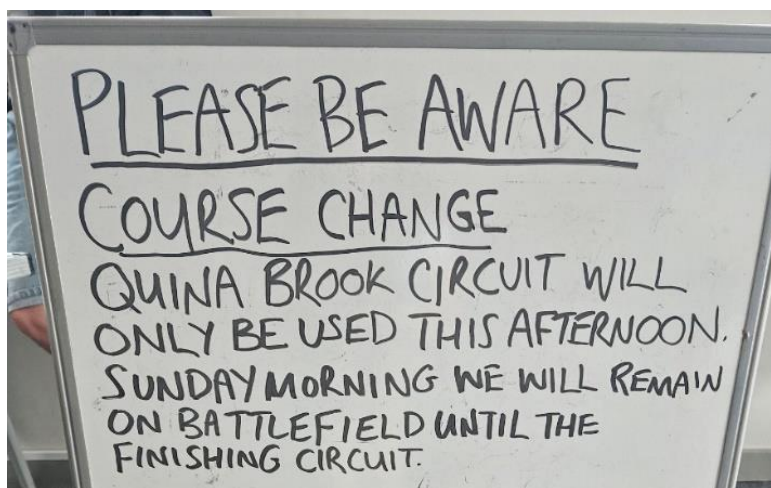 PLEASE BE AWARE
COURSE CHANGE
QUINA BROOK CIRCUIT WILL
ONLY BE USED THIS AFTERNOON.
SUNDAY MORNING WE WILL REMAIN
ON BATTLEFIELD UNTIL THE
FINISHING CIRCUIT.